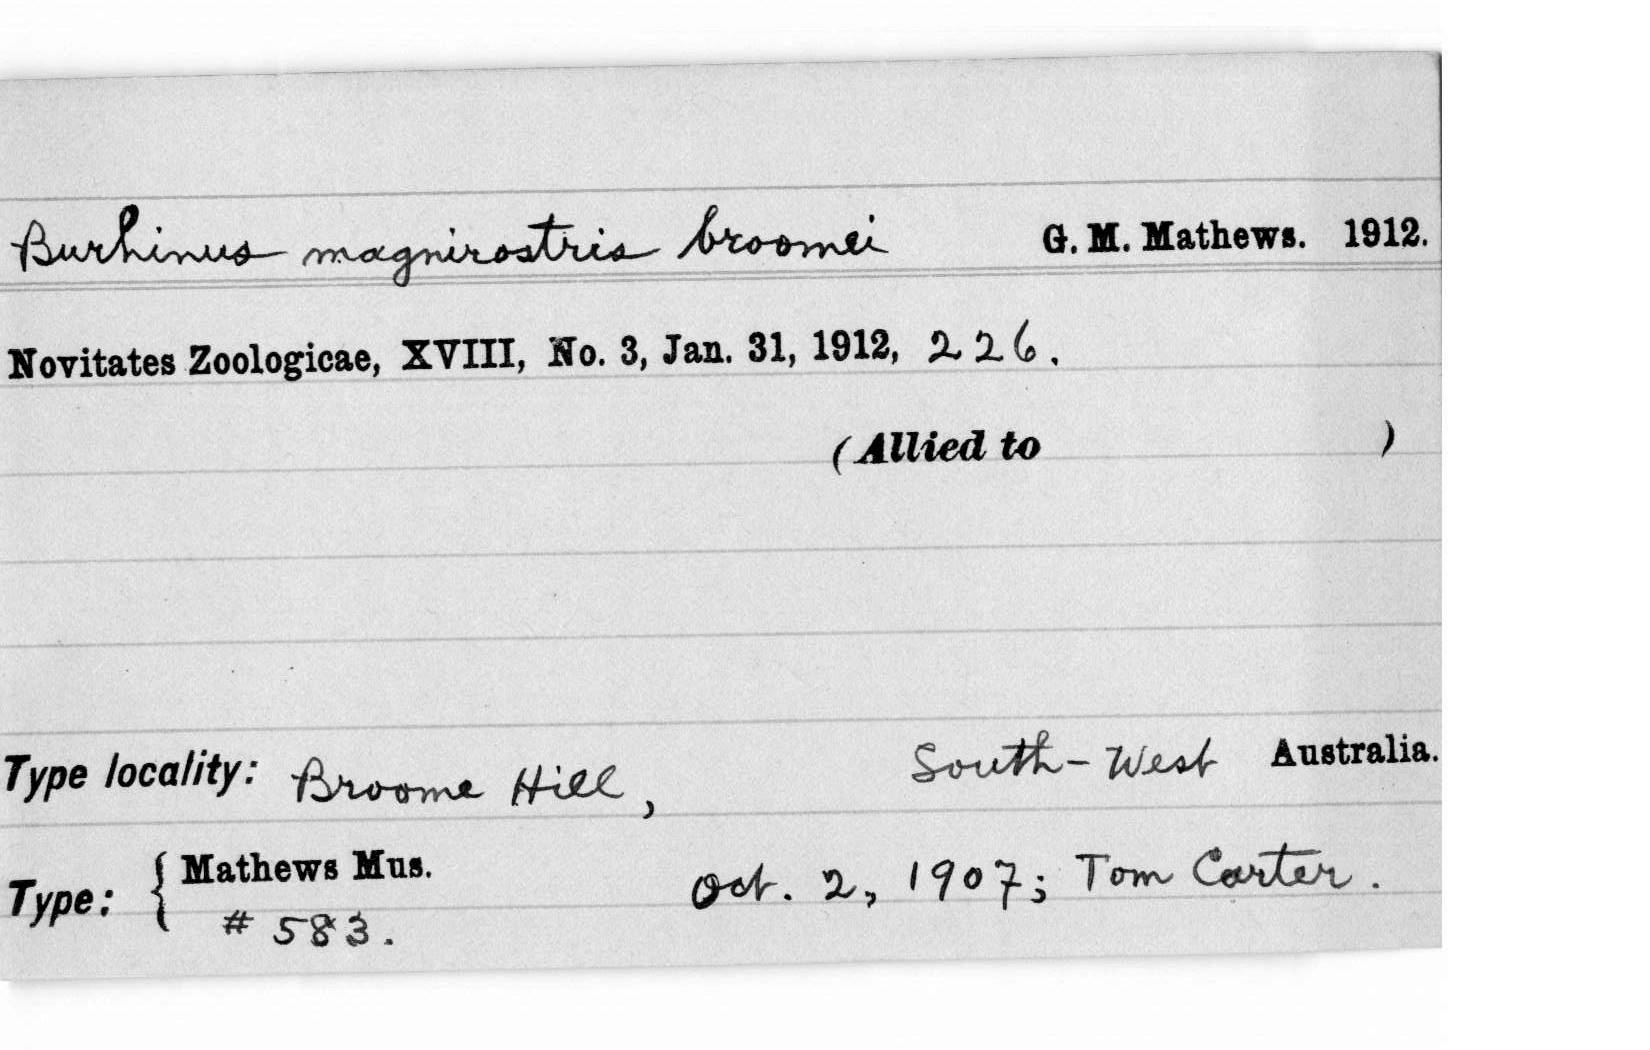 Burhinus magnirostris broomei G. M. Mathews. 1912.
Novitates Zoologicae, XVIII, No. 3, Jan. 31, 1912, 226.
(Allied to )
Type locality: Broome Hill, South-West Australia.
Type: { Mathews Mus. Oct. 2, 1907; Tom Carter.
# 583.